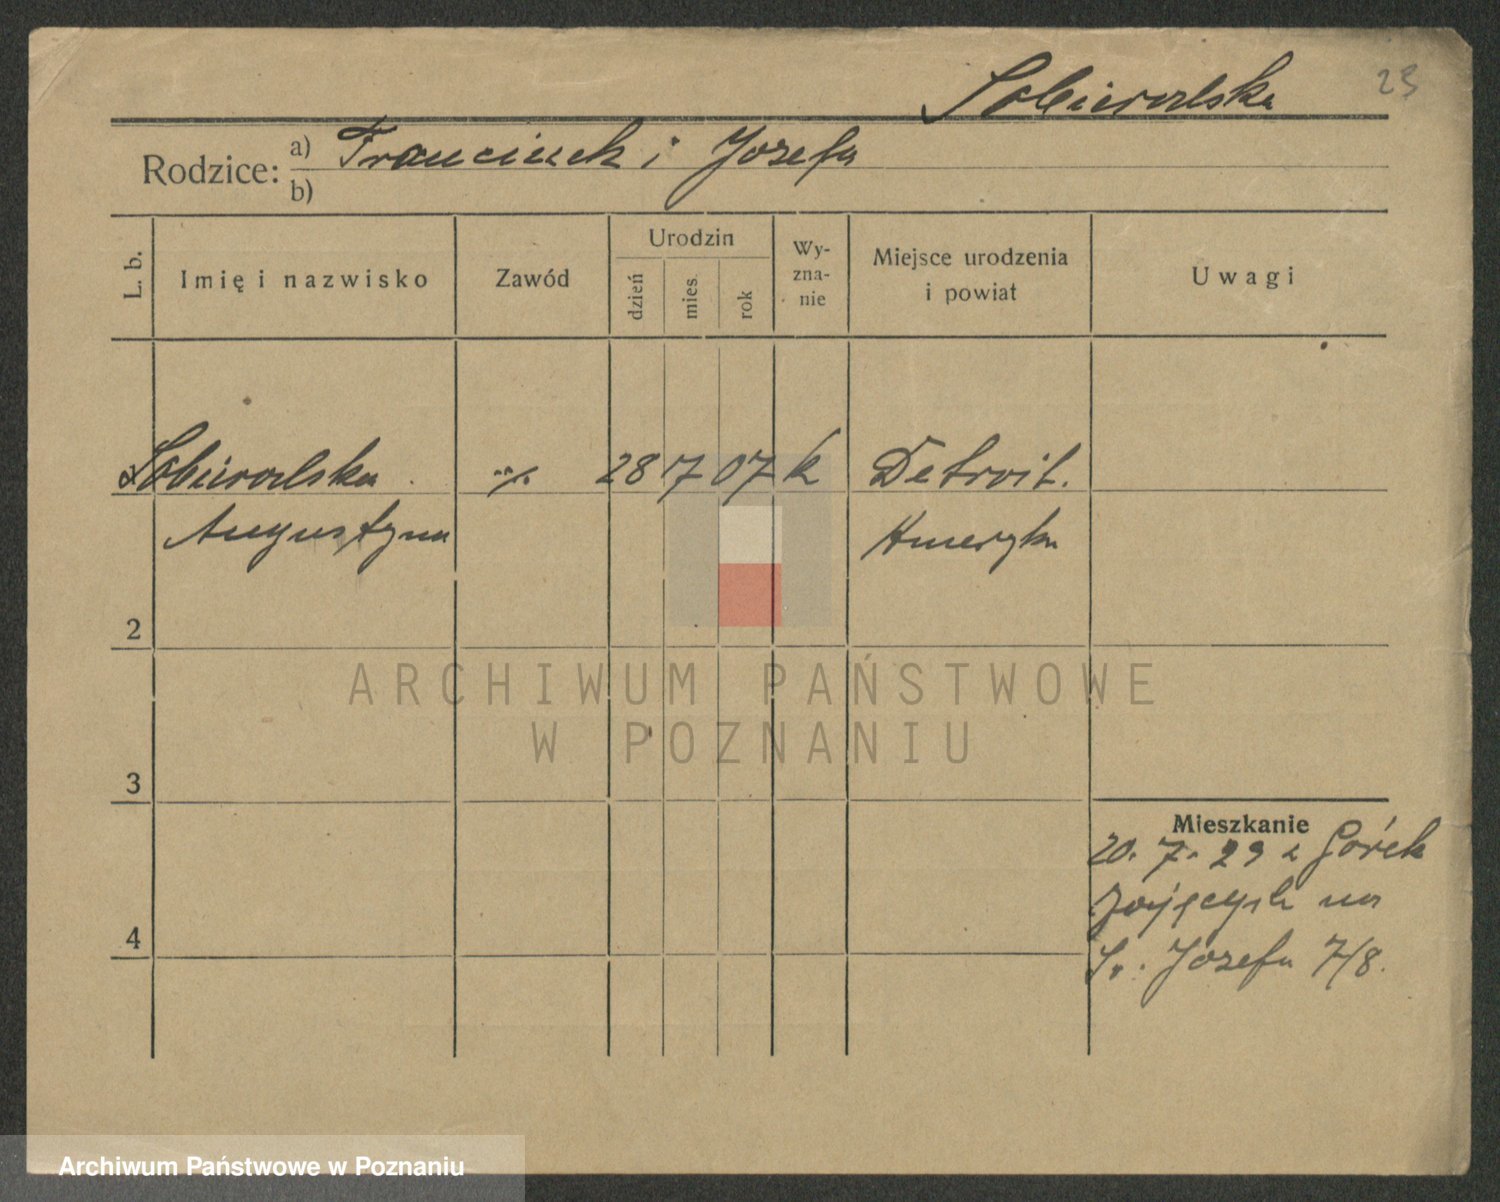 23
Sobieralska
Rodzice: a) Franciszek i Jozefa
b)
L. b. Imię i nazwisko Zawód Urodzin dzień mies. rok Wy-zna-nie Miejsce urodzenia i powiat Uwagi
Sobieralska ·/. 28 7 07 k Detroit.
Augustyna Ameryka
2
3
4
Mieszkanie
20. 7. 29 z Górek
na
Św. Józefa 7/8.
ARCHIWUM PAŃSTWOWE
W POZNANIU
Archiwum Państwowe w Poznaniu